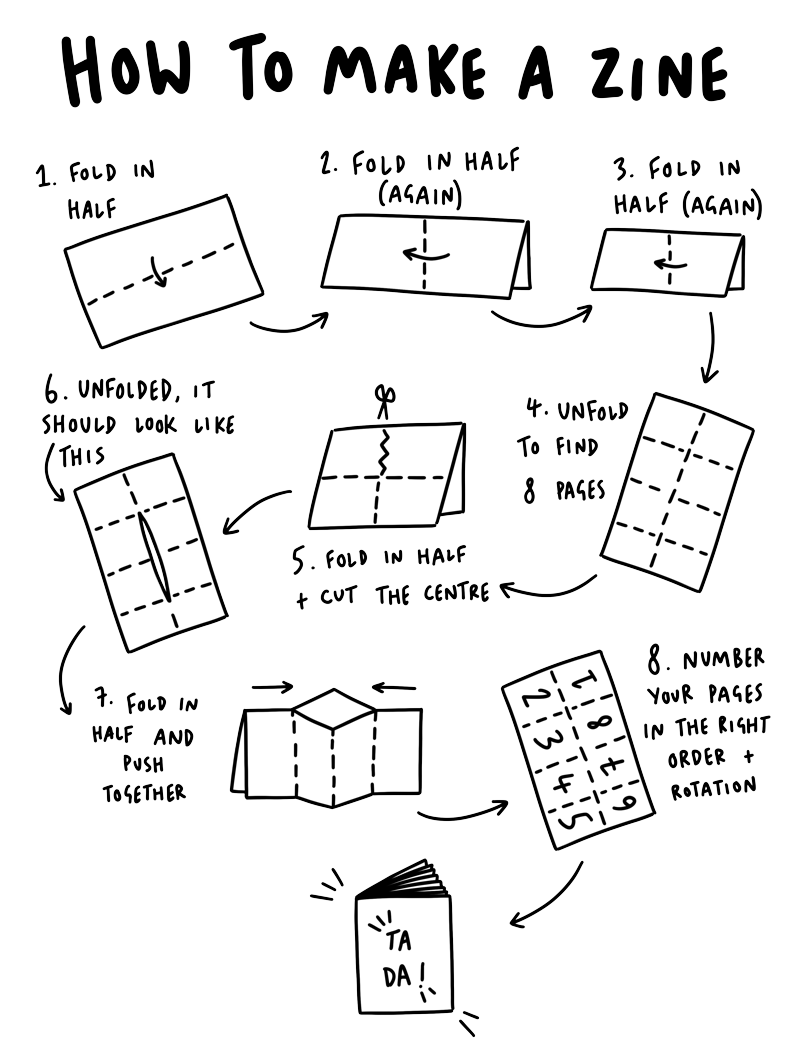 HOW TO MAKE A ZINE
1. FOLD IN
HALF
2. FOLD IN HALF
(AGAIN)
3. FOLD IN
HALF (AGAIN)
4. UNFOLD
TO FIND
8 PAGES
5. FOLD IN HALF
+ CUT THE CENTRE
6. UNFOLDED, IT
SHOULD LOOK LIKE
THIS
7. FOLD IN
HALF AND
PUSH
TOGETHER
8. NUMBER
YOUR PAGES
IN THE RIGHT
ORDER +
ROTATION
2 1
3 8
4 7
5 6
TA
DA!